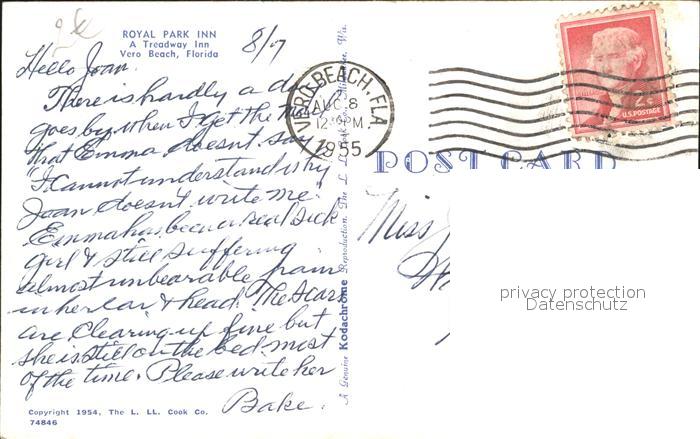 ROYAL PARK INN
A Treadway Inn
Vero Beach, Florida
8/7
Hello Joan.
There is hardly a day
goes by when I get the mail
that Emma doesn't say
"I cannot understand why
Joan doesn't write me.
Emma has been a real sick
girl & still suffering
almost unbearable pain
in her ear & head. The scars
are clearing up fine but
she is still on the bed most
of the time. Please write her
Bake.
Copyright 1954, The L. LL. Cook Co.
74846
A Genuine Kodachrome Reproduction. The L. LL. Cook Co., Milwaukee, Wis.
VERO BEACH, FLA.
AUG 8
12 PM
1955
2¢
U.S. POSTAGE
POST CARD
Miss
privacy protection
Datenschutz